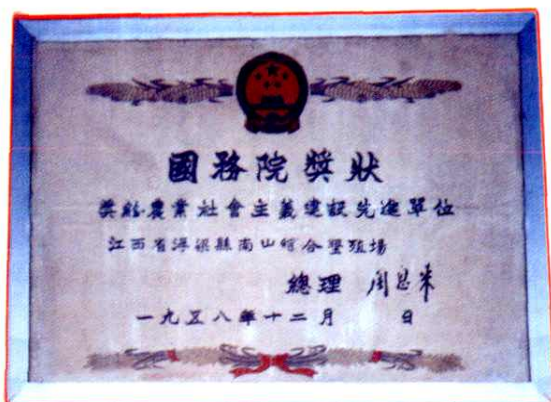 國務院獎狀
獎給農業社會主義建設先進單位
江西省浮梁縣南山綜合墾殖場
總理 周恩來
一九五八年十二月 日